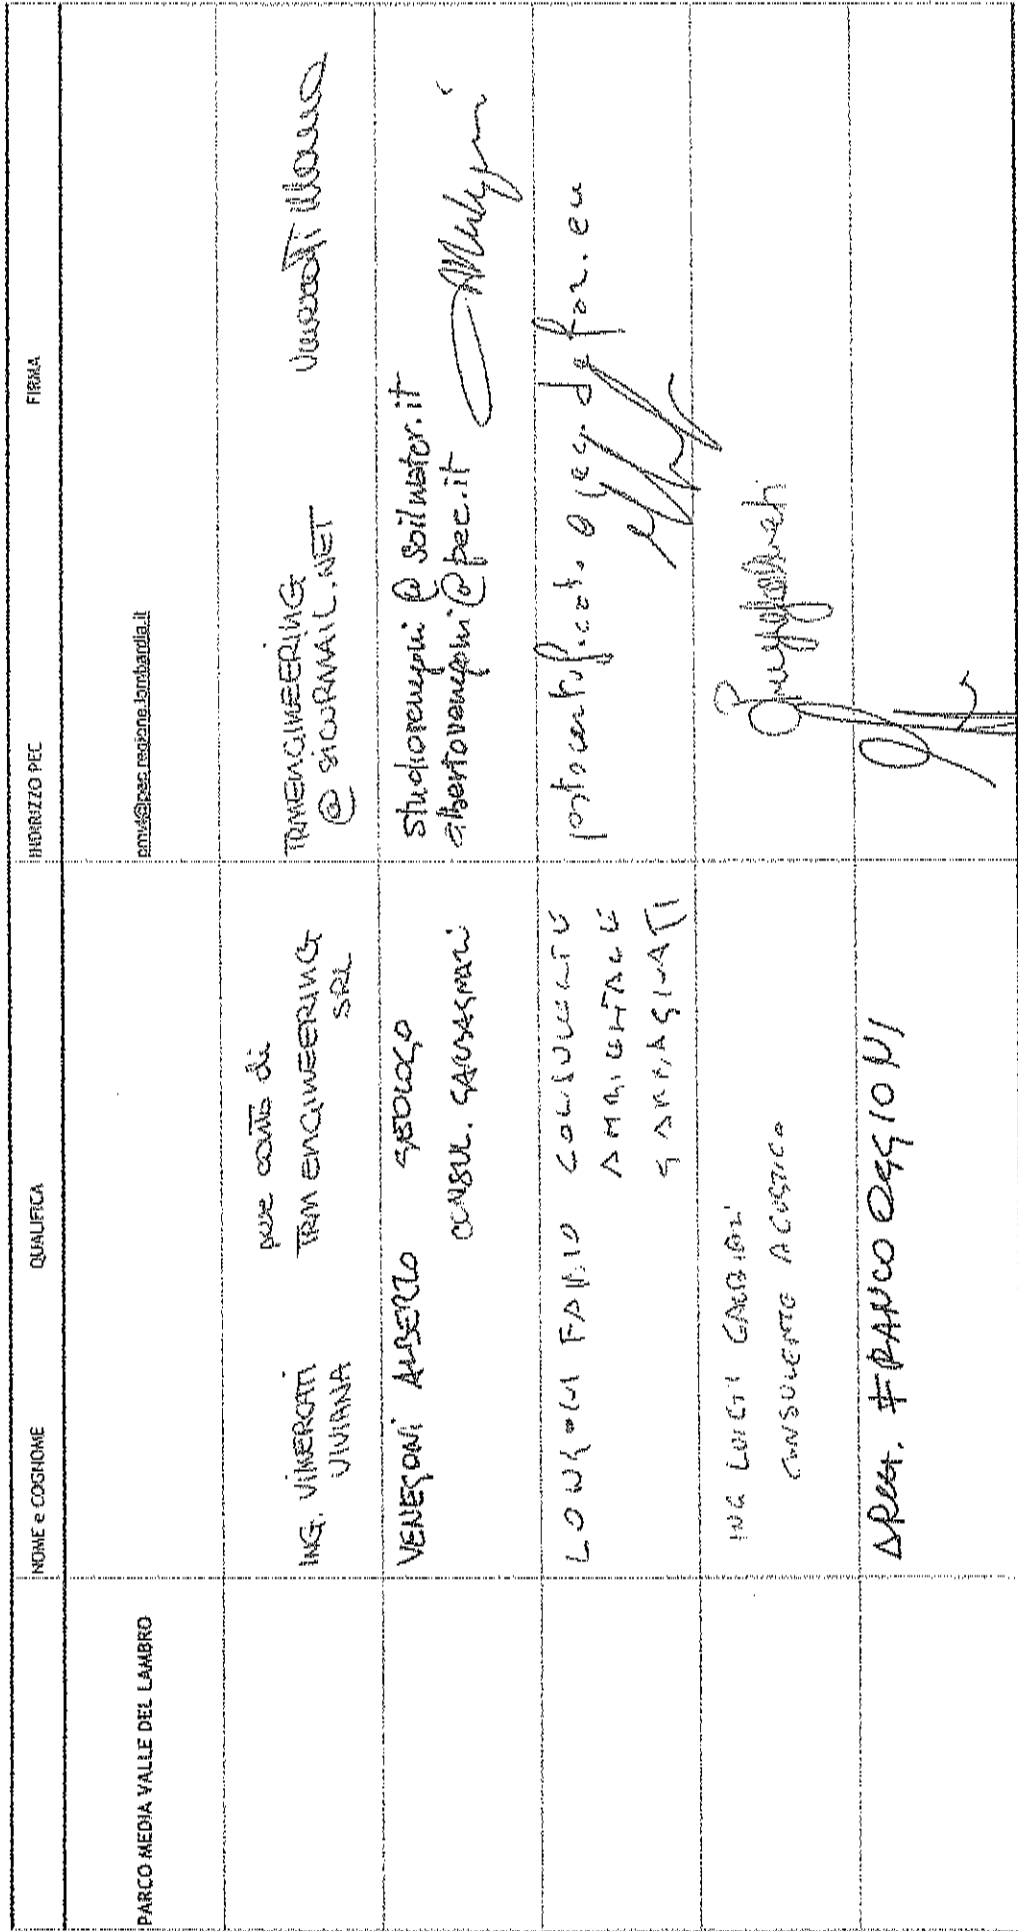 NOME e COGNOME QUALIFICA INDIRIZZO PEC FIRMA
PARCO MEDIA VALLE DEL LAMBRO
pmvl@pec.regione.lombardia.it
ING. VIMERCATI VIVIANA
per conto di
TRM ENGINEERING
SRL
TRMENGINEERING
@ SICURMAIL.NET
VENEGONI ALBERTO GEOLOGO
CONSUL.
studiovenegoni@soilwater.it
albertovenegoni@pec.it
LONGONI FABIO CONSULENTE
AMBIENTALE
postacertificata@pec.dafon.eu
ING
CONSULENTE ACUSTICO
FRANCO OGGIONI